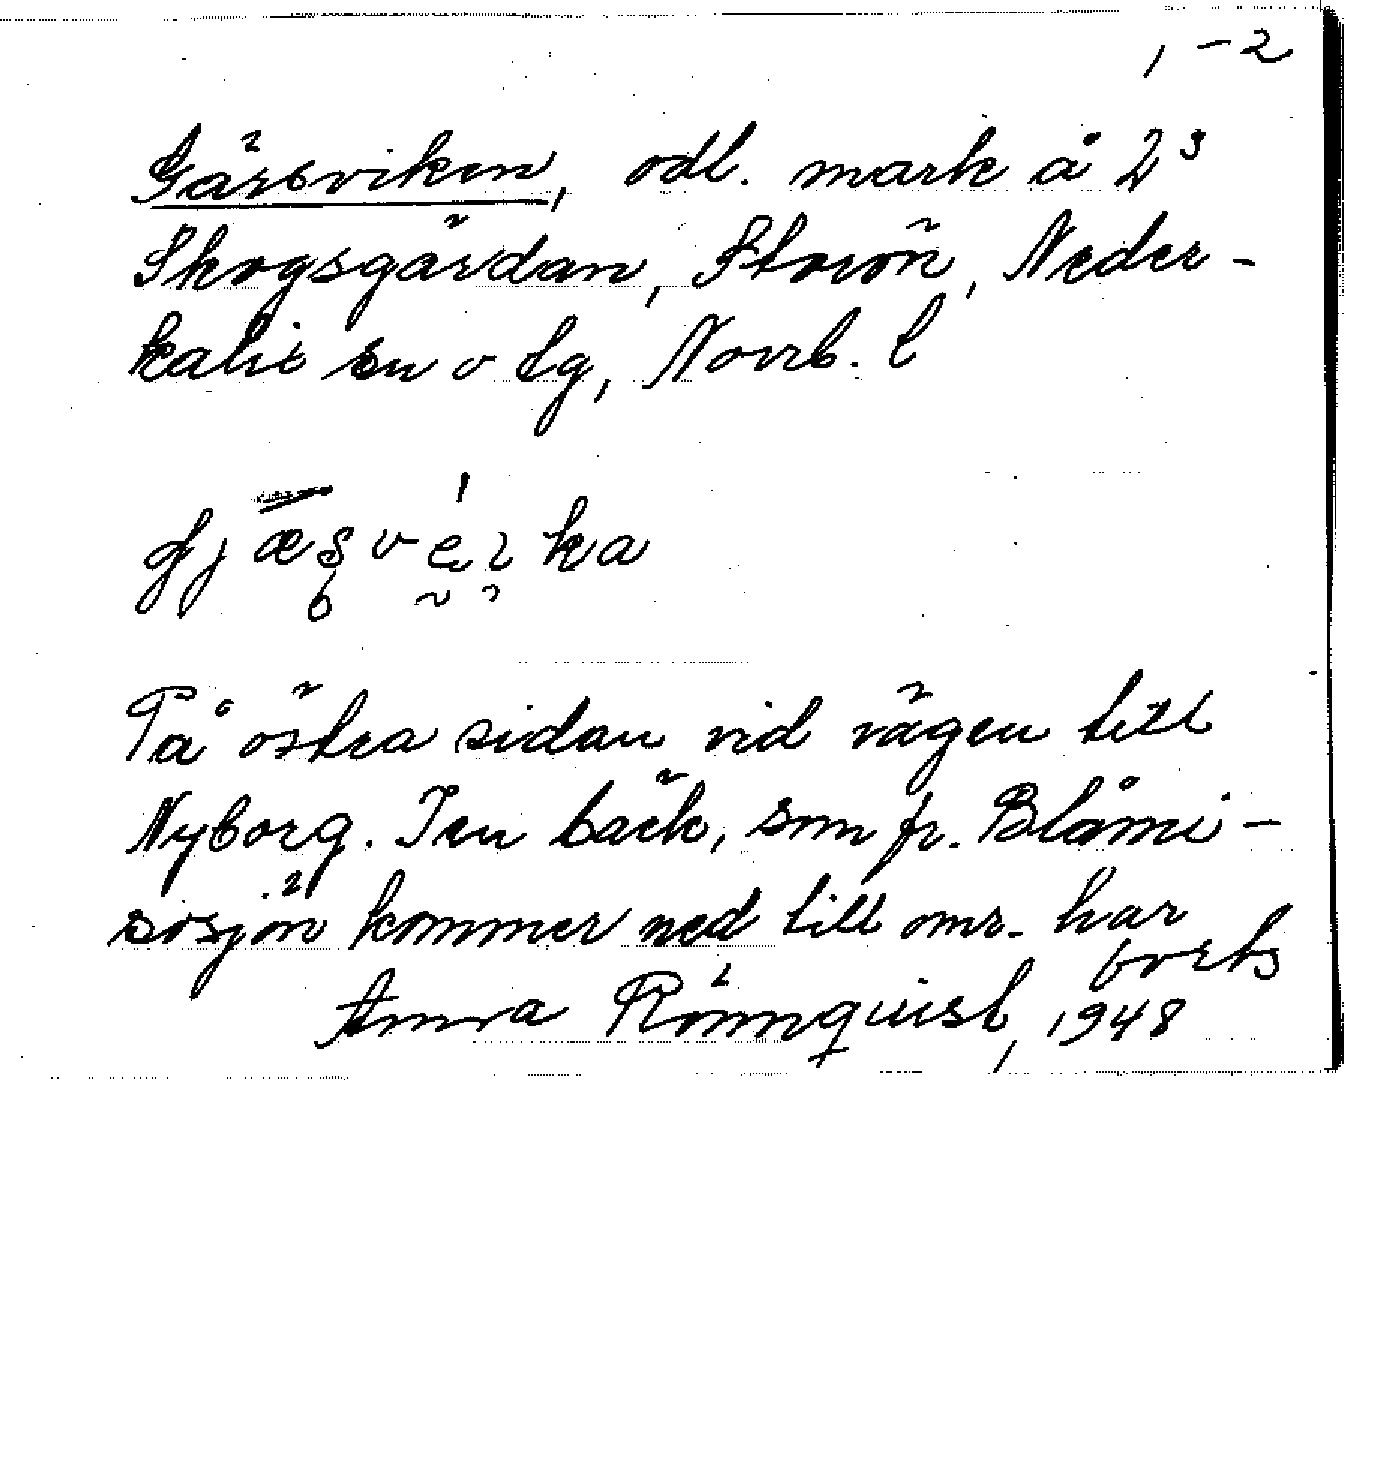 1-2
Gärsviken, odl. mark å 2³
Skogsgärdan, Storön, Neder-
kalix sn o tg, Norrb. l
På östra sidan vid vägen till
Nyborg. I en bäck, som fr. Blåmi-
sösjön kommer ned till omr. har
forts
Anna Rönnquist, 1948